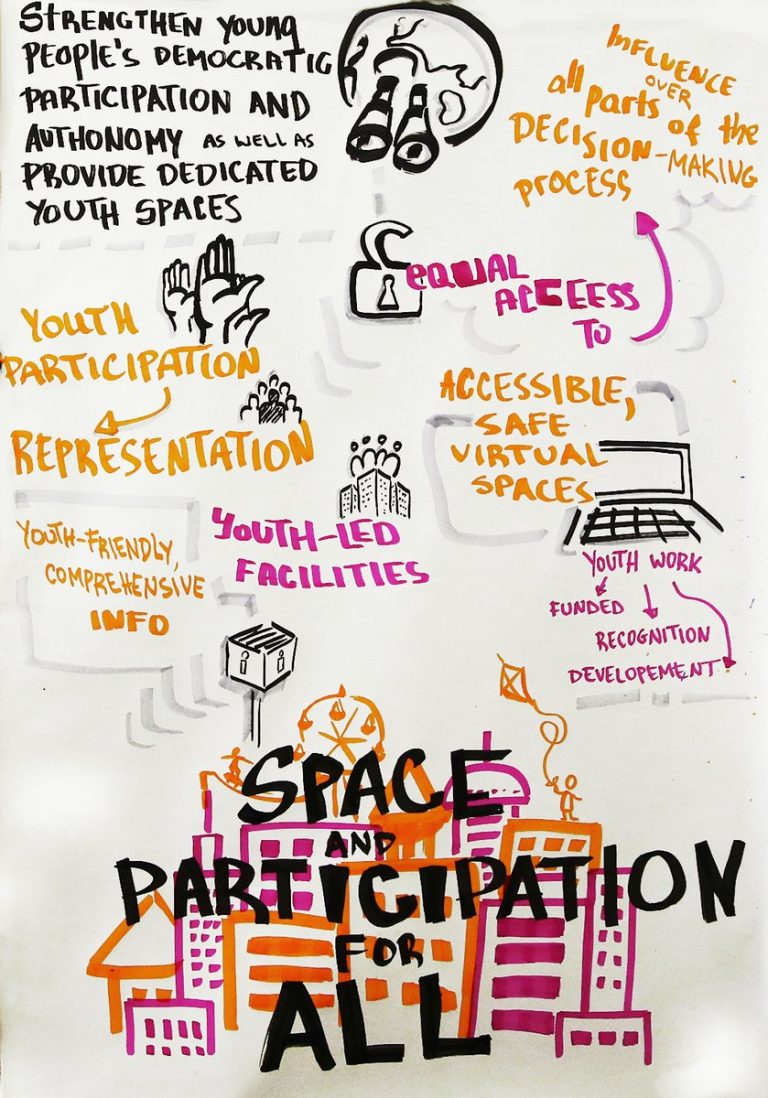 STRENGTHEN YOUNG
PEOPLE'S DEMOCRATIC
PARTICIPATION AND
AUTHONOMY AS WELL AS
PROVIDE DEDICATED
YOUTH SPACES
INFLUENCE
OVER
all parts of the
DECISION-MAKING
PROCESS
EQUAL
ACCEESS
TO
YOUTH
PARTICIPATION
REPRESENTATION
ACCESSIBLE,
SAFE
VIRTUAL
SPACES
YOUTH-FRIENDLY,
COMPREHENSIVE
INFO
YOUTH-LED
FACILITIES
YOUTH WORK
FUNDED
RECOGNITION
DEVELOPEMENT
SPACE
AND
PARTICIPATION
FOR
ALL